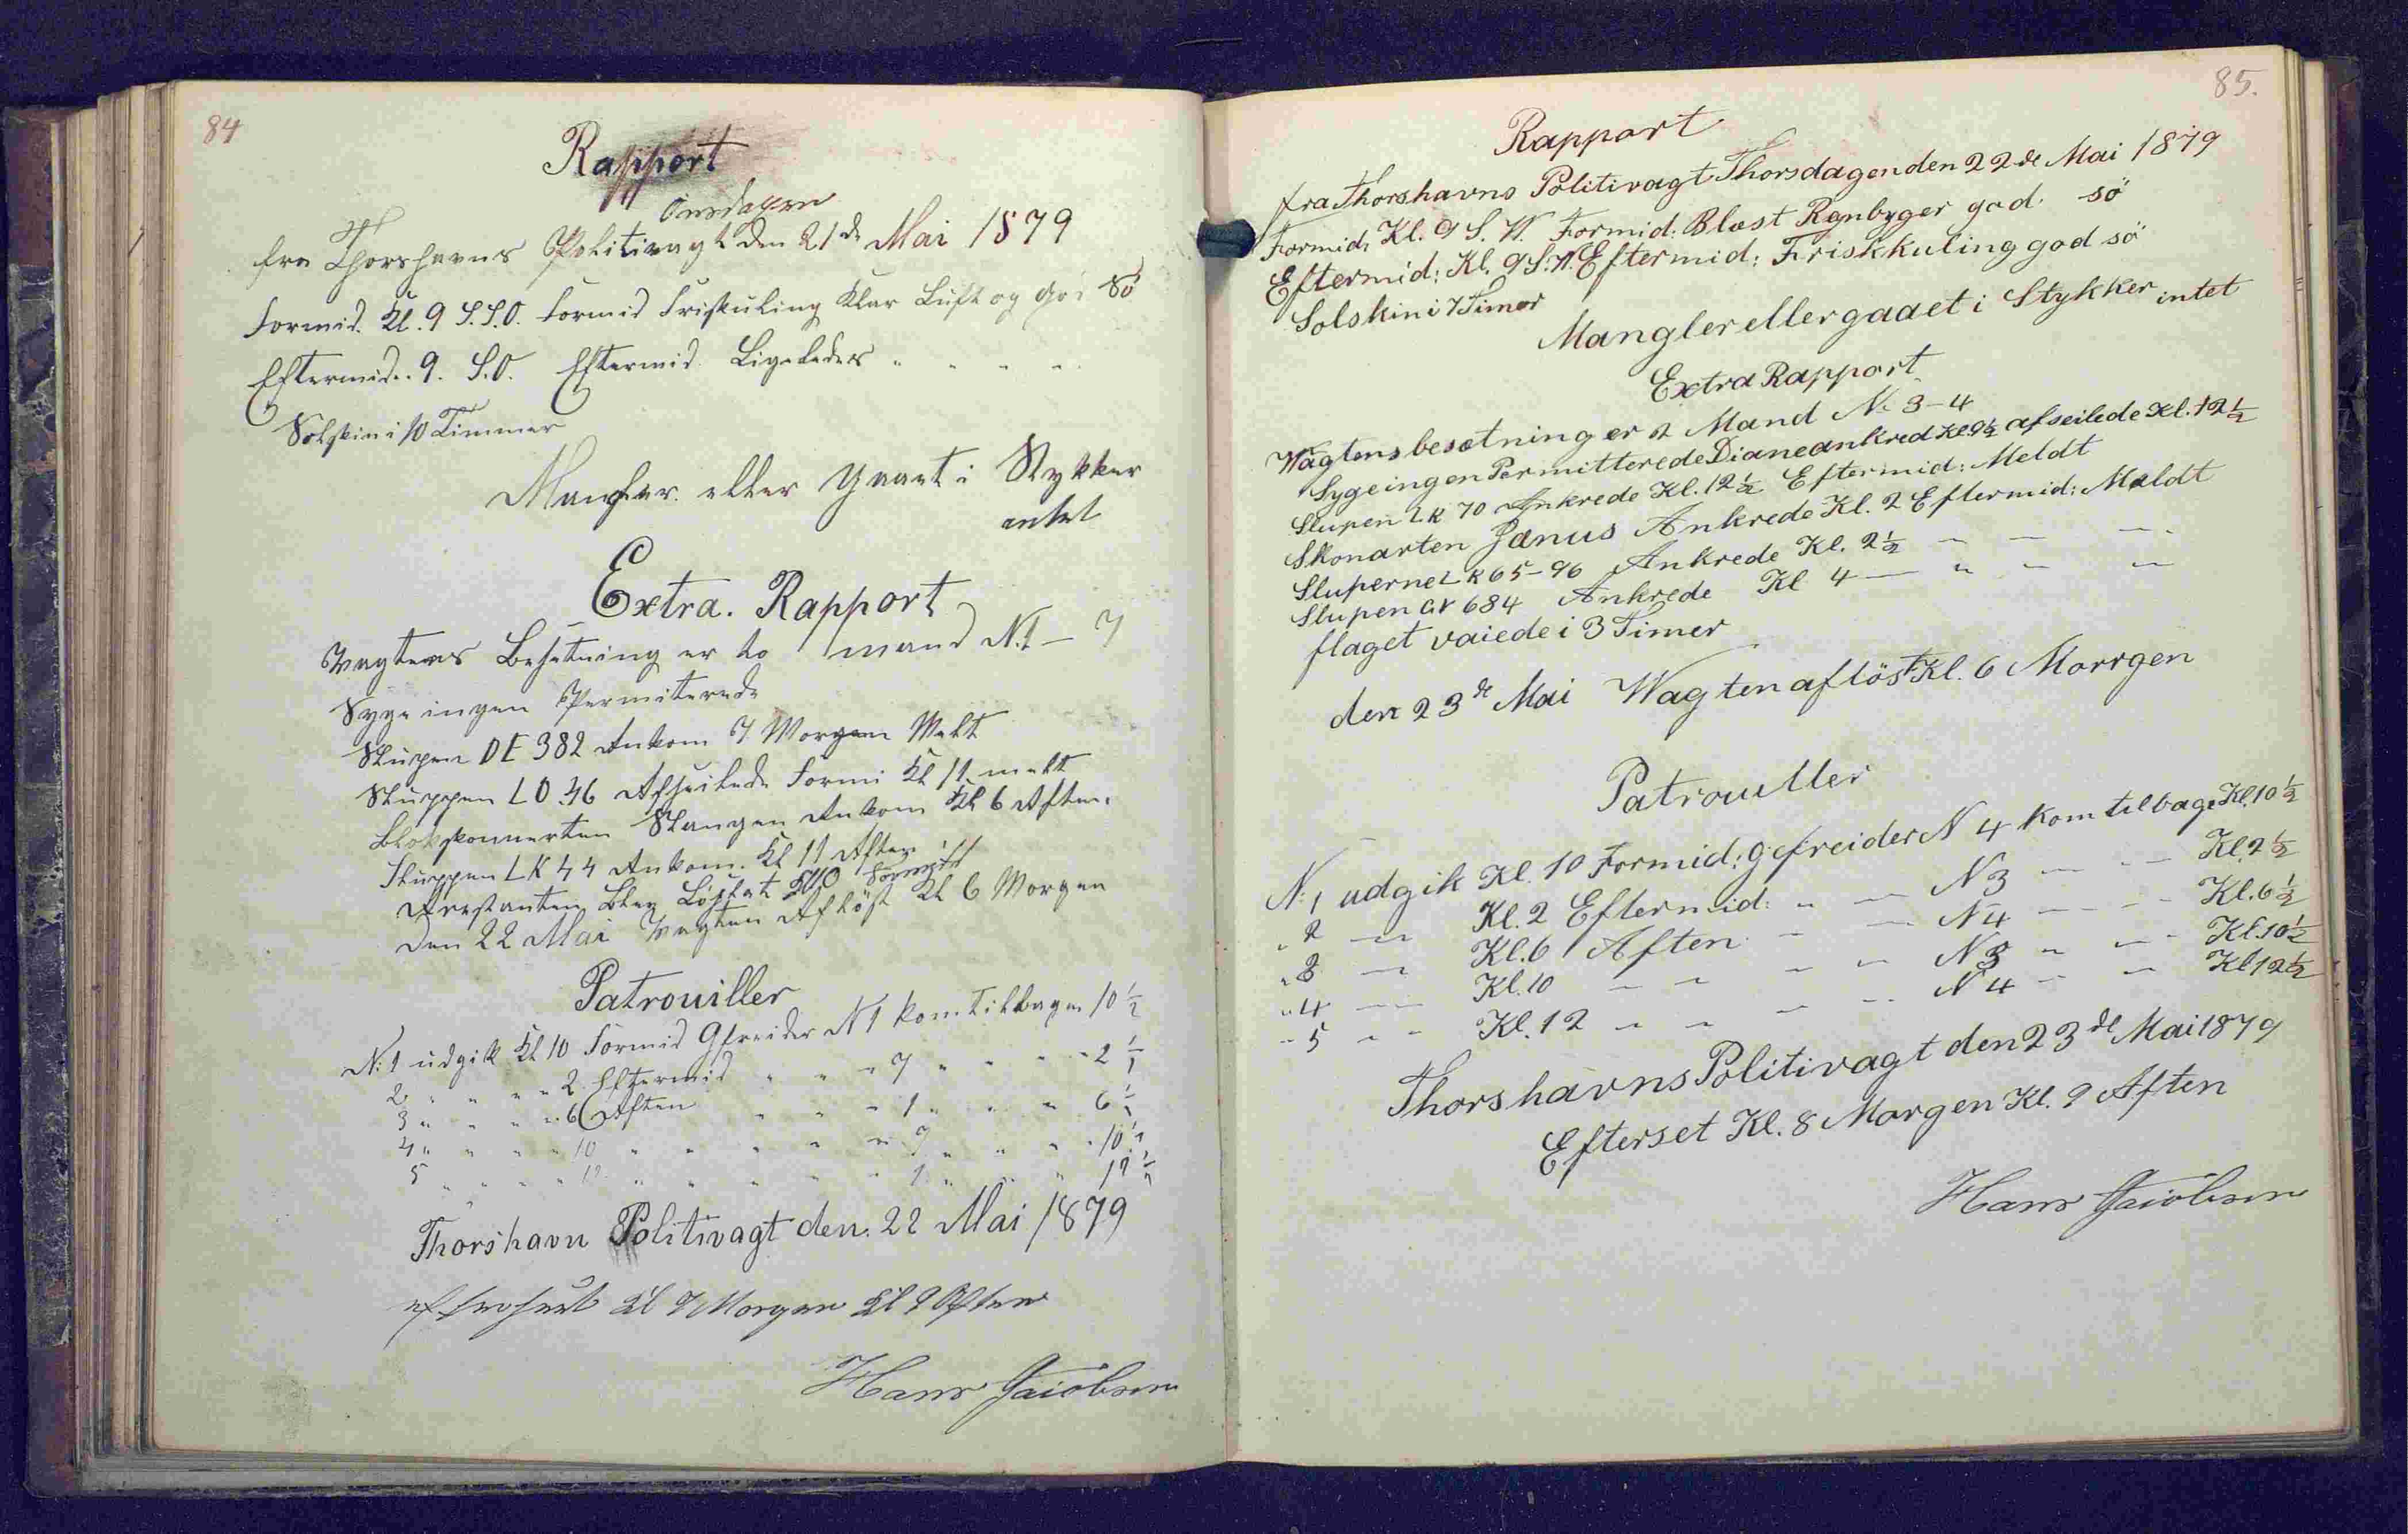 84
Rapport
Onsdagen
fra Thorshavns Politivagt den 21de Mai 1879
Formid. Kl. 9 S.S.O. Formid Friskuling Klar Luft og Sö
Eftermid. 9. S.O. Eftermid. Ligeledes " " " "
Solskin i 10 Timmer
Mangler eller Gaaet i Stykker
intet
Extra. Rapport
Vagtens Besetning er to mand N. 1 – 7
Syge ingen Permiterede
Slupen DE 382 Ankom 7 Morgen Melt
Sluppen LO 36 Afseilede Formi Kl 11 melt
Skonnerten Ankom Kl 6 Aften.
Sluppen LK 44 Ankom. Kl 11 Aften
Arrestanten blev Löslat Kl 10 Formid
den 22 Mai Vagten Aflöst Kl 6 Morgen
Patrouiller
N: 1 udgik Kl 10 Formid Gfreider N 1 kom tilbage 10 1/2
2 " " " 2 Eftermid " " " 7 " " " 2 1/2
3 " " " 6 Aften " " " 1 " " " 6 1/2
4 " " " 10 " " " " 7 " " " 10 1/2
5 " " " 12 " " " " 1 " " " 12 1/2
Thorshavn Politivagt den. 22 Mai 1879
efterseet Kl 7 Morgen Kl 9 Aften
Hans Jacobsen
85.
Rapport
fra Thorshavns Politivagt Thorsdagen den 22de Mai 1879
Formid: Kl. 9 S. W. Formid: Blæst Regnbyger god. sö
Eftermid: Kl. 9 S: W. Eftermid: Friskkuling god sö
Solskin i 7 Timer
Mangler eller gaaet i Stykker intet
Extra Rapport
Wagtens besætning er 2 Mand N: 3-4
Syge ingen Permitterede Diane ankred Kl. 9 1/2 afseilede Kl. 12 1/2
Slupen LK 70 Ankrede Kl. 12 1/2 Eftermid: Meldt
Skonarten Janus Ankrede Kl. 2 Eftermid: Meldt
Sluperne LK 65-96 Ankrede Kl. 2 1/2 – – –
Slupen GY 684 Ankrede Kl 4 – " – –
flaget vaiede i 3 Timer
den 23de Mai Wagten aflöst Kl. 6 Morrgen
Patrouller
N: 1 udgik Kl. 10 Formid: gefreider N 4 kom tilbage Kl. 10 1/2
" 2 – Kl. 2 Eftermid: " – N 3 – – Kl. 2 1/2
" 3 – Kl. 6 Aften – – N 4 – – Kl. 6 1/2
" 4 – Kl. 10 – – – – N 3 " – Kl. 10 1/2
" 5 " – Kl. 12 – – – – N 4 – – Kl 12 1/2
Thorshavns Politivagt den 23de Mai 1879
Efterset Kl. 8 Morgen Kl. 9 Aften
Hans Jacobsen